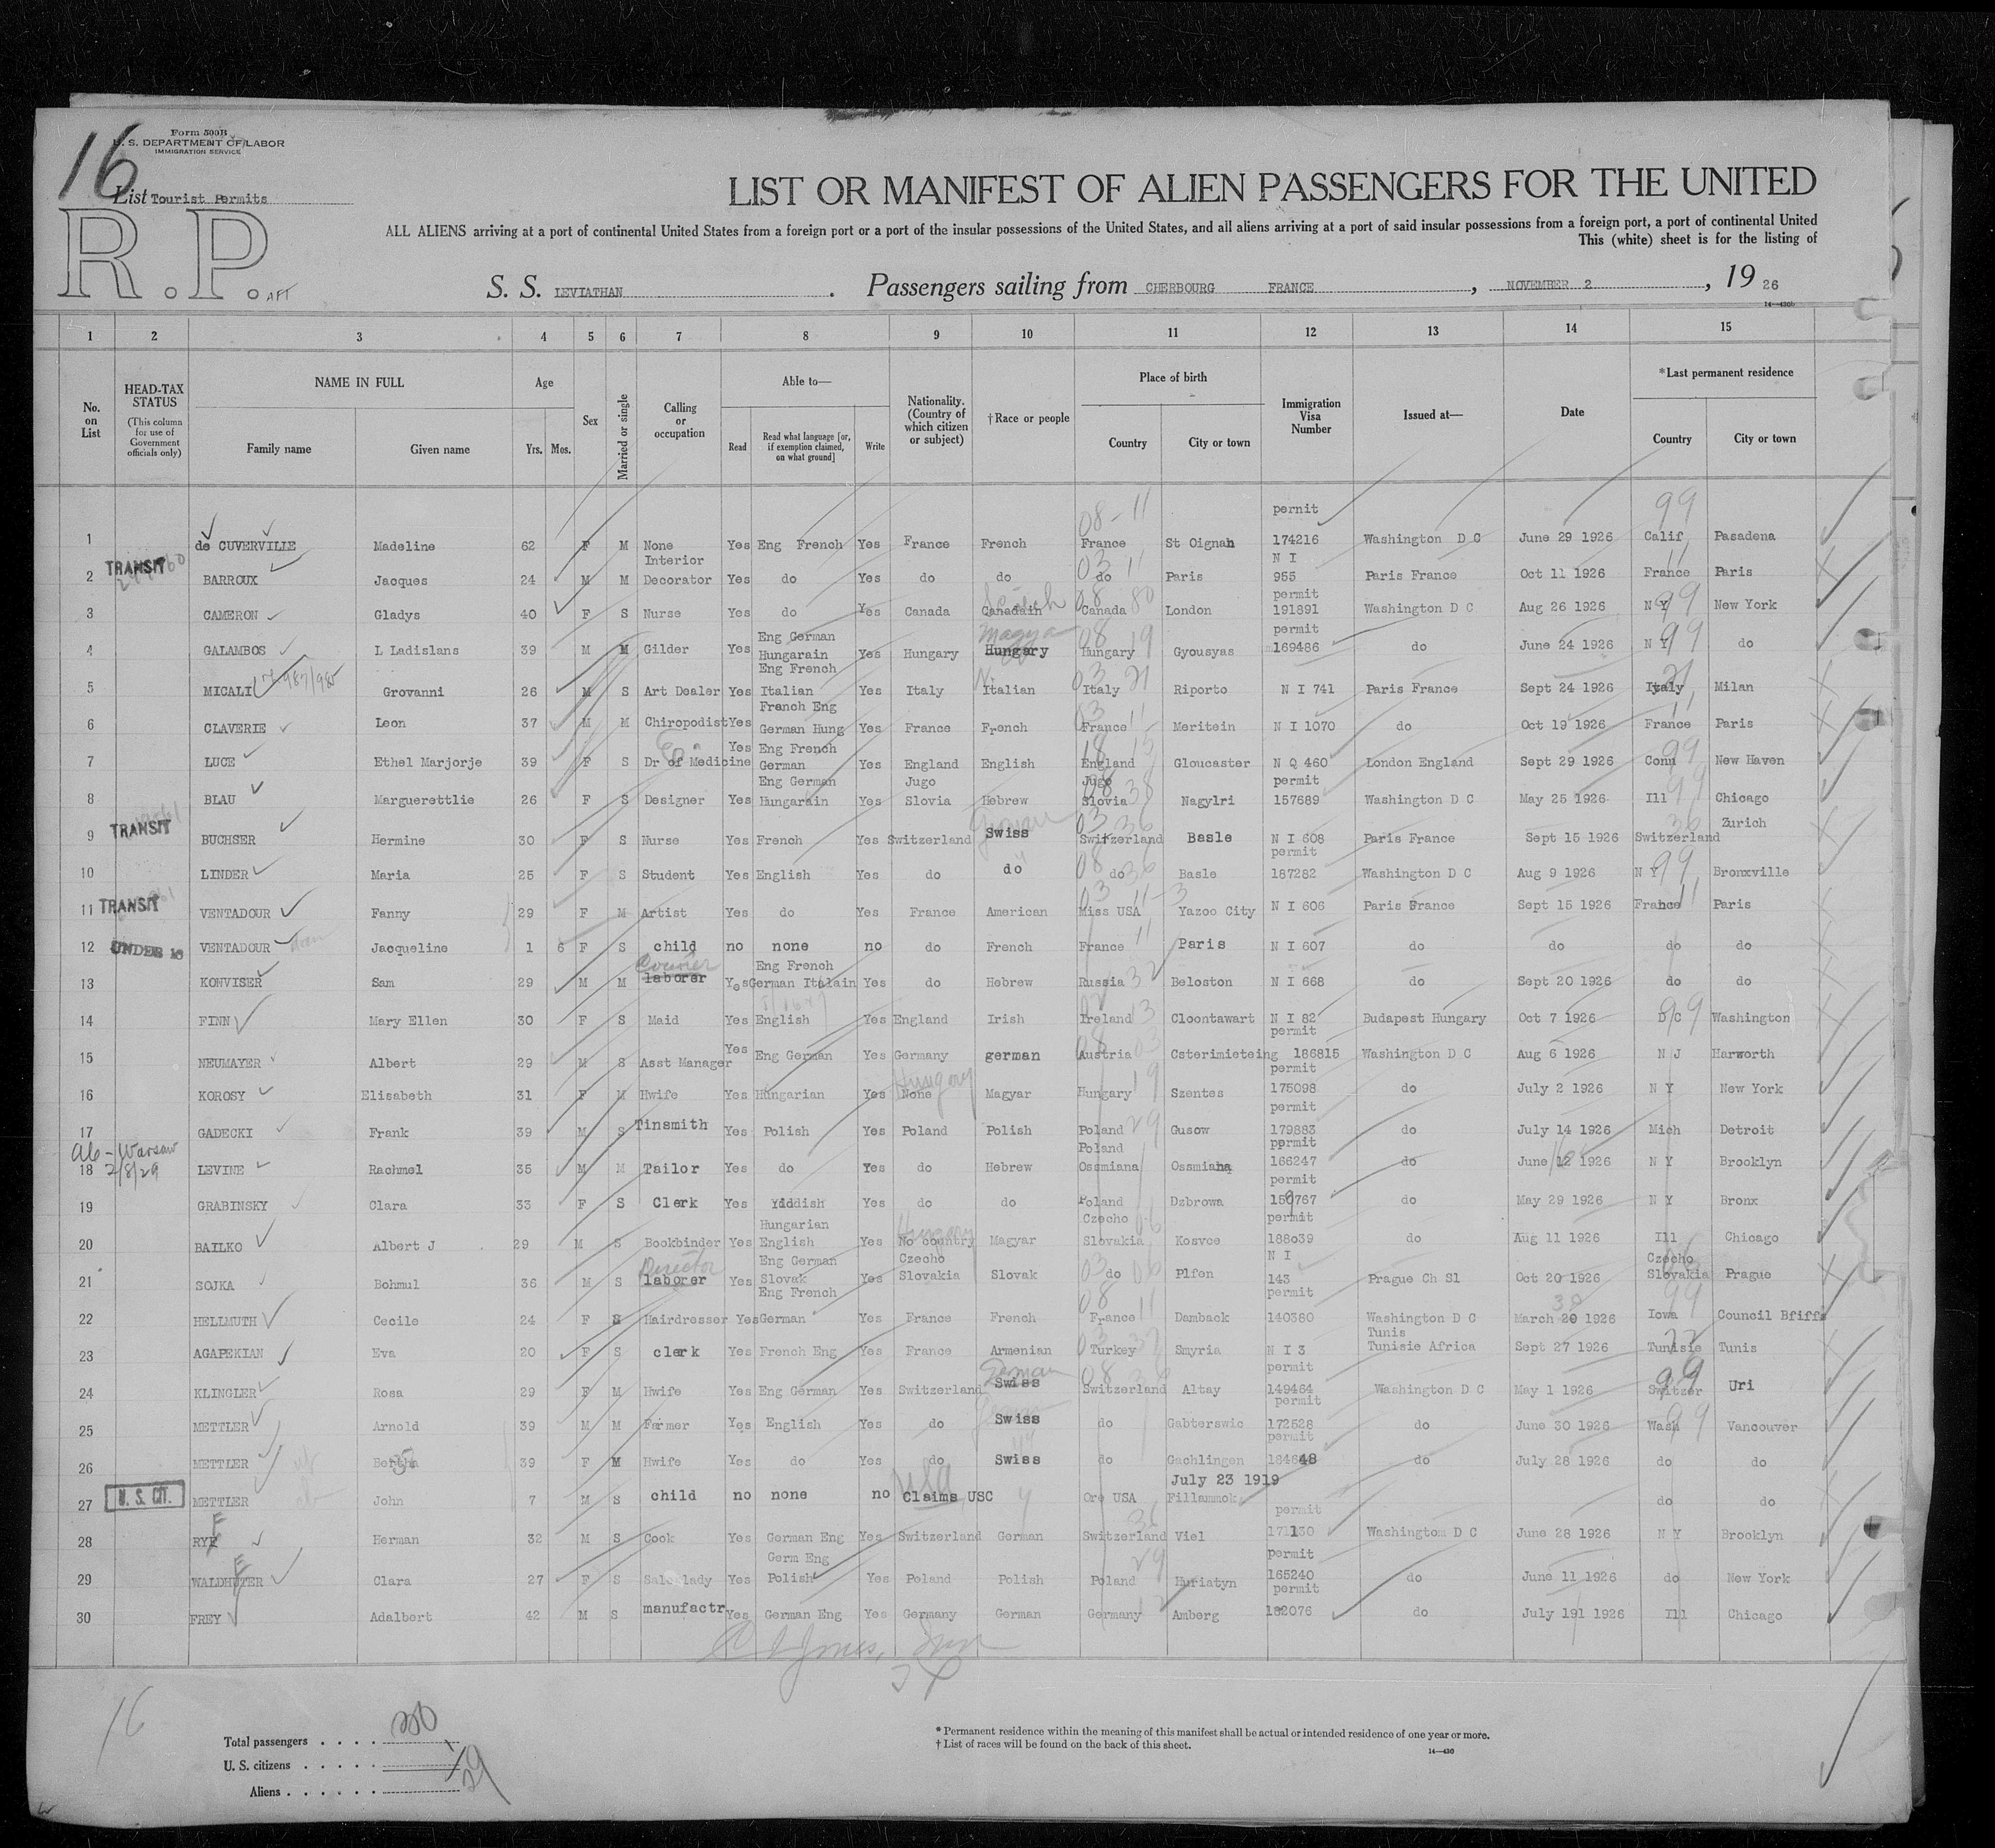 16
Form 500B
U. S. DEPARTMENT OF LABOR
IMMIGRATION SERVICE
List Tourist Permits
R.P. AFT
LIST OR MANIFEST OF ALIEN PASSENGERS FOR THE UNITED
ALL ALIENS arriving at a port of continental United States from a foreign port or a port of the insular possessions of the United States, and all aliens arriving at a port of said insular possessions from a foreign port, a port of continental United
This (white) sheet is for the listing of
S. S. LEVIATHAN . Passengers sailing from CHERBOURG FRANCE , NOVEMBER 2 , 19 26
14—430b
1 2 3 4 5 6 7 8 9 10 11 12 13 14 15
No. on List
HEAD-TAX STATUS (This column for use of Government officials only)
NAME IN FULL Family name Given name
Age Yrs. Mos.
Sex
Married or single
Calling or occupation
Able to— Read Read what language [or, if exemption claimed, on what ground] Write
Nationality. (Country of which citizen or subject)
†Race or people
Place of birth Country City or town
Immigration Visa Number
Issued at—
Date
*Last permanent residence Country City or town
1 de CUVERVILLE Madeline 62 F M None Yes Eng French Yes France French 08-11 France St Oignah permit 174216 Washington D C June 29 1926 99 Calif Pasadena
2 TRANSIT BARROUX Jacques 24 M M Interior Decorator Yes do Yes do do 03 11 do Paris N I 955 Paris France Oct 11 1926 11 France Paris
3 CAMERON Gladys 40 F S Nurse Yes do Yes Canada Canadain Scotch 08 80 Canada London permit 191891 Washington D C Aug 26 1926 99 N Y New York
4 GALAMBOS L Ladislans 39 M M Gilder Yes Eng German Hungarain Yes Hungary Magyar Hungary 08 19 Hungary Gyousyas permit 169486 do June 24 1926 99 N Y do
5 MICALI Grovanni 26 M S Art Dealer Yes Eng French Italian Yes Italy Italian 03 21 Italy Riporto N I 741 Paris France Sept 24 1926 21 Italy Milan
6 CLAVERIE Leon 37 M M Chiropodist Yes French Eng German Hung Yes France French 03 11 France Meritein N I 1070 do Oct 19 1926 11 France Paris
7 LUCE Ethel Marjorje 39 F S Dr of Medicine Yes Eng French German Yes England English 18 15 England Gloucaster N Q 460 London England Sept 29 1926 99 Conn New Haven
8 BLAU Marguerettlie 26 F S Designer Yes Eng German Hungarain Yes Jugo Slovia Hebrew 08 38 Jugo Slovia Nagylri permit 157689 Washington D C May 25 1926 99 Ill Chicago
9 TRANSIT BUCHSER Hermine 30 F S Nurse Yes French Yes Switzerland Swiss German 03 36 Switzerland Basle N I 608 Paris France Sept 15 1926 36 Switzerland Zurich
10 LINDER Maria 25 F S Student Yes English Yes do do 08 36 do Basle permit 187282 Washington D C Aug 9 1926 99 N Y Bronxville
11 TRANSIT VENTADOUR Fanny 29 F M Artist Yes do Yes France American 03 11-3 Miss USA Yazoo City N I 606 Paris France Sept 15 1926 11 France Paris
12 UNDER 16 VENTADOUR Jacqueline 1 6 F S child no none no do French 11 France Paris N I 607 do do do do
13 KONVISER Sam 29 M M Courier laborer Yes Eng French German Italain Yes do Hebrew 32 Russia Beloston N I 668 do Sept 20 1926 do do
14 FINN Mary Ellen 30 F S Maid Yes English Yes England Irish 13 Ireland Cloontawart N I 82 Budapest Hungary Oct 7 1926 99 D C Washington
15 NEUMAYER Albert 29 M S Asst Manager Yes Eng German Yes Germany german 08 03 Austria Csterimieteing permit 186815 Washington D C Aug 6 1926 N J Harworth
16 KOROSY Elisabeth 31 F M Hwife Yes Hungarian Yes Hungary None Magyar 19 Hungary Szentes permit 175098 do July 2 1926 N Y New York
17 GADECKI Frank 39 M S Tinsmith Yes Polish Yes Poland Polish 29 Poland Gusow permit 179883 do July 14 1926 Mich Detroit
18 Warsaw 2/8/29 LEVINE Rachmel 35 M M Tailor Yes do Yes do Hebrew Poland Ossmiana Ossmiana permit 166247 do June 12 1926 N Y Brooklyn
19 GRABINSKY Clara 33 F S Clerk Yes Yiddish Yes do do Poland Dzbrowa permit 159767 do May 29 1926 N Y Bronx
20 BAILKO Albert J 29 M S Bookbinder Yes Hungarian English Yes Hungary No country Magyar 06 Czecho Slovakia Kosvce permit 188039 do Aug 11 1926 Ill Chicago
21 SOJKA Bohmul 36 M S Director laborer Yes Eng German Slovak Yes Czecho Slovakia Slovak 03 06 do Plfen N I 143 Prague Ch Sl Oct 20 1926 06 Czecho Slovakia Prague
22 HELLMUTH Cecile 24 F S Hairdresser Yes Eng French German Yes France French 08 11 France Damback permit 140380 Washington D C March 20 30 1926 99 Iowa Council Bfiffs
23 AGAPEKIAN Eva 20 F S clerk Yes French Eng Yes France Armenian 03 37 Turkey Smyria N I 3 Tunis Tunisie Africa Sept 27 1926 Tunisie Tunis
24 KLINGLER Rosa 29 F M Hwife Yes Eng German Yes Switzerland German Swiss 08 36 Switzerland Altay permit 149464 Washington D C May 1 1926 99 Switzer Uri
25 METTLER Arnold 39 M M Farmer Yes English Yes do German Swiss do Gabterswic permit 172528 do June 30 1926 99 Wash Vancouver
26 METTLER Bertha 39 F M Hwife Yes do Yes do Swiss do Gachlingen permit 164648 do July 28 1926 do do
27 U. S. CIT. METTLER John 7 M S child no none no USA Claims USC Ore USA July 23 1919 Fillammok do do
28 RYF Herman 32 M S Cook Yes German Eng Yes Switzerland German 36 Switzerland Viel permit 171130 Washington D C June 28 1926 N Y Brooklyn
29 WALDHUTER Clara 27 F S Saleslady Yes Germ Eng Polish Yes Poland Polish 29 Poland Huriatyn permit 165240 do June 11 1926 do New York
30 FREY Adalbert 42 M S manufactr Yes German Eng Yes Germany German Germany Amberg permit 182076 do July 191 1926 Ill Chicago
16
Total passengers . . . . 30
U. S. citizens . . . . . 1
Aliens . . . . . . 29
* Permanent residence within the meaning of this manifest shall be actual or intended residence of one year or more.
† List of races will be found on the back of this sheet.
14—430